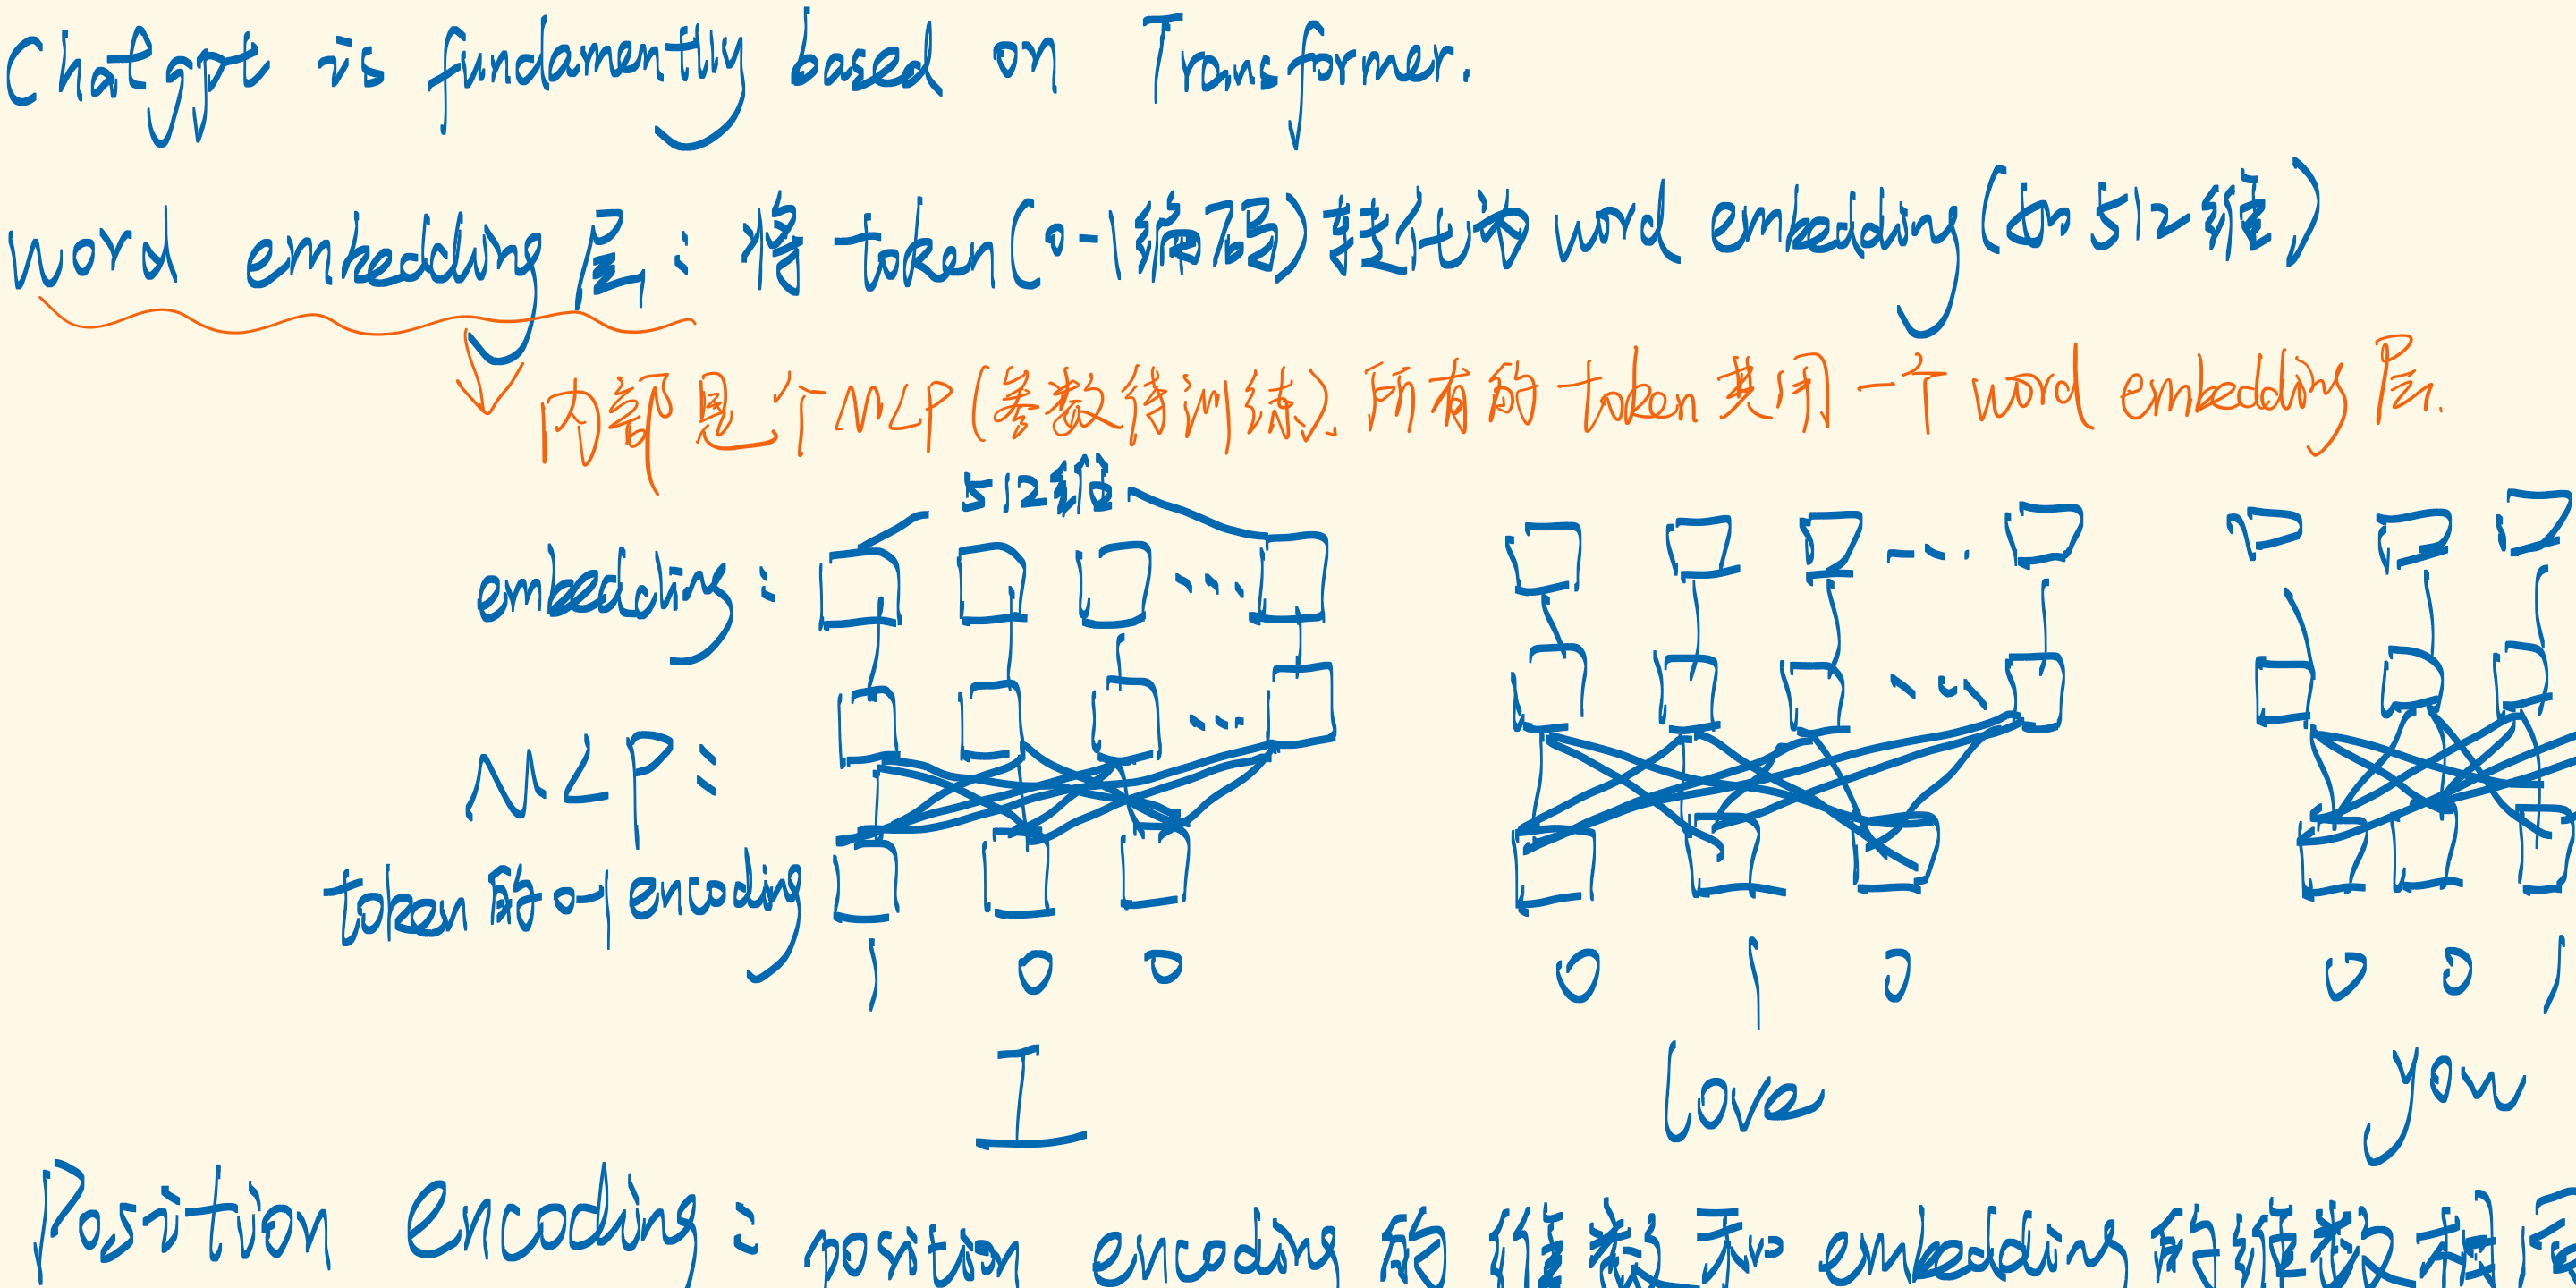 Chatgpt is fundamentlly based on Transformer.
word embedding 层: 将 token(0-1编码)转化为 word embedding(如512维)
内部是个MLP(参数待训练). 所有的 token 共用一个 word embedding 层.
512维
embedding:
MLP:
token的0-1 encoding
1 0 0 0 1 0 0 0 1
I love you
Position encoding: position encoding 的维数和 embedding 的维数相同